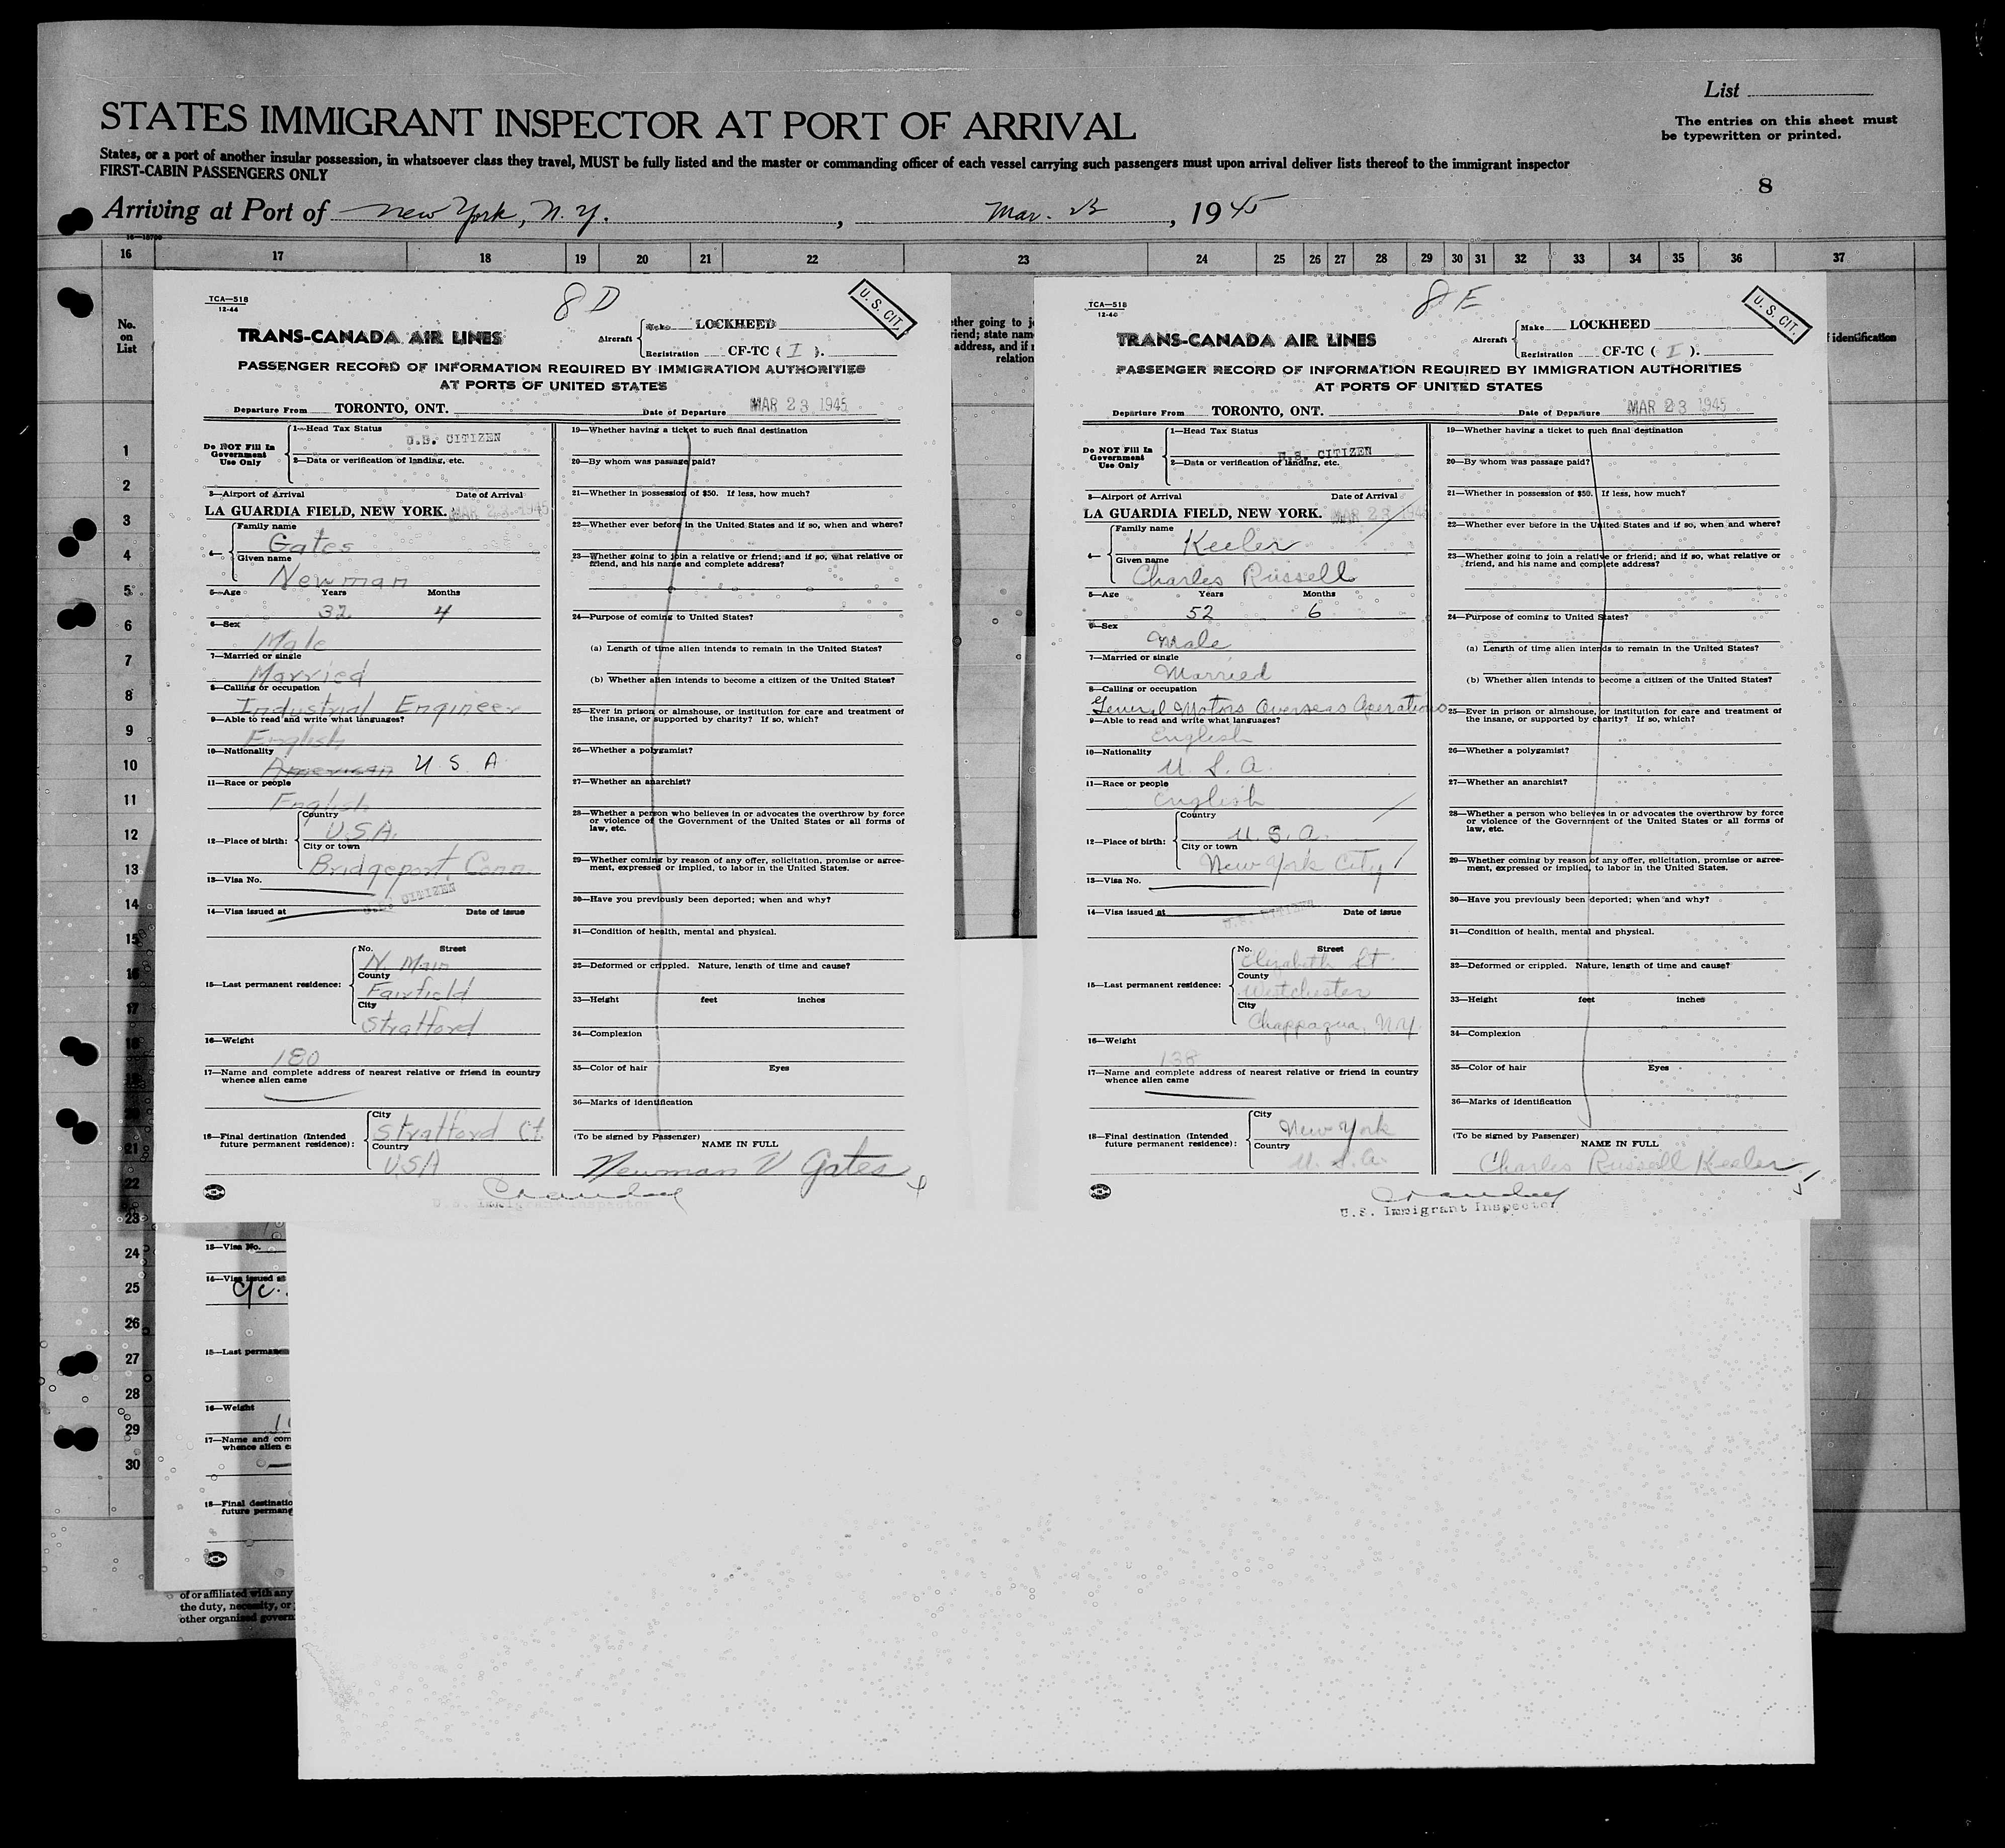 List
STATES IMMIGRANT INSPECTOR AT PORT OF ARRIVAL
The entries on this sheet must
be typewritten or printed.
States, or a port of another insular possession, in whatsoever class they travel, MUST be fully listed and the master or commanding officer of each vessel carrying such passengers must upon arrival deliver lists thereof to the immigrant inspector
FIRST-CABIN PASSENGERS ONLY
8
Arriving at Port of New York, N. Y. , Mar. 23 , 1945
16 17 18 19 20 21 22 23 24 25 26 27 28 29 30 31 32 33 34 35 36 37
No.
on
List
1
2
3
4
5
6
7
8
9
10
11
12
13
14
15
16
17
18
19
20
21
22
23
24
25
26
27
28
29
30
TCA—518
12-44
8 D
U. S. CIT.
TRANS-CANADA AIR LINES
Aircraft
Make LOCKHEED
Registration CF-TC ( I ).
PASSENGER RECORD OF INFORMATION REQUIRED BY IMMIGRATION AUTHORITIES
AT PORTS OF UNITED STATES
Departure From TORONTO, ONT. Date of Departure MAR 23 1945
Do NOT Fill In
Government
Use Only
1—Head Tax Status
U.S. CITIZEN
2—Data or verification of landing, etc.
3—Airport of Arrival Date of Arrival
LA GUARDIA FIELD, NEW YORK. MAR 23 1945
4—
Family name
Gates
Given name
Newman
5—Age Years Months
32 4
6—Sex
Male
7—Married or single
Married
8—Calling or occupation
Industrial Engineer
9—Able to read and write what languages?
English
10—Nationality
American U S A
11—Race or people
English
12—Place of birth:
Country
U.S.A.
City or town
Bridgeport, Conn
13—Visa No.
U.S. CITIZEN
14—Visa issued at Date of issue
15—Last permanent residence:
No. Street
N. Main
County
Fairfield
City
Stratford
16—Weight
180
17—Name and complete address of nearest relative or friend in country
whence alien came
18—Final destination (Intended
future permanent residence):
City
Stratford Ct.
Country
USA
19—Whether having a ticket to such final destination
20—By whom was passage paid?
21—Whether in possession of $50. If less, how much?
22—Whether ever before in the United States and if so, when and where?
23—Whether going to join a relative or friend; and if so, what relative or
friend, and his name and complete address?
24—Purpose of coming to United States?
(a) Length of time alien intends to remain in the United States?
(b) Whether alien intends to become a citizen of the United States?
25—Ever in prison or almshouse, or institution for care and treatment of
the insane, or supported by charity? If so, which?
26—Whether a polygamist?
27—Whether an anarchist?
28—Whether a person who believes in or advocates the overthrow by force
or violence of the Government of the United States or all forms of
law, etc.
29—Whether coming by reason of any offer, solicitation, promise or agree-
ment, expressed or implied, to labor in the United States.
30—Have you previously been deported; when and why?
31—Condition of health, mental and physical.
32—Deformed or crippled. Nature, length of time and cause?
33—Height feet inches
34—Complexion
35—Color of hair Eyes
36—Marks of identification
(To be signed by Passenger)
NAME IN FULL
Newman V Gates
U.S. Immigrant Inspector
ther going to jo
riend; state nam
address, and if r
relation
f identification
TCA—518
12-40
8 E
U. S. CIT.
TRANS-CANADA AIR LINES
Aircraft
Make LOCKHEED
Registration CF-TC ( I ).
PASSENGER RECORD OF INFORMATION REQUIRED BY IMMIGRATION AUTHORITIES
AT PORTS OF UNITED STATES
Departure From TORONTO, ONT. Date of Departure MAR 23 1945
Do NOT Fill In
Government
Use Only
1—Head Tax Status
U.S. CITIZEN
2—Data or verification of landing, etc.
3—Airport of Arrival Date of Arrival
LA GUARDIA FIELD, NEW YORK. MAR 23 1945
4—
Family name
Keeler
Given name
Charles Russell
5—Age Years Months
52 6
6—Sex
Male
7—Married or single
Married
8—Calling or occupation
General Motors Overseas Operations
9—Able to read and write what languages?
English
10—Nationality
U. S. A.
11—Race or people
English
12—Place of birth:
Country
U. S. A.
City or town
New York City
13—Visa No.
U.S. CITIZEN
14—Visa issued at Date of issue
15—Last permanent residence:
No. Street
Elizabeth St.
County
Westchester
City
Chappaqua, N.Y.
16—Weight
138
17—Name and complete address of nearest relative or friend in country
whence alien came
18—Final destination (Intended
future permanent residence):
City
New York
Country
U. S. A.
19—Whether having a ticket to such final destination
20—By whom was passage paid?
21—Whether in possession of $50. If less, how much?
22—Whether ever before in the United States and if so, when and where?
23—Whether going to join a relative or friend; and if so, what relative or
friend, and his name and complete address?
24—Purpose of coming to United States?
(a) Length of time alien intends to remain in the United States?
(b) Whether alien intends to become a citizen of the United States?
25—Ever in prison or almshouse, or institution for care and treatment of
the insane, or supported by charity? If so, which?
26—Whether a polygamist?
27—Whether an anarchist?
28—Whether a person who believes in or advocates the overthrow by force
or violence of the Government of the United States or all forms of
law, etc.
29—Whether coming by reason of any offer, solicitation, promise or agree-
ment, expressed or implied, to labor in the United States.
30—Have you previously been deported; when and why?
31—Condition of health, mental and physical.
32—Deformed or crippled. Nature, length of time and cause?
33—Height feet inches
34—Complexion
35—Color of hair Eyes
36—Marks of identification
(To be signed by Passenger)
NAME IN FULL
Charles Russell Keeler
U.S. Immigrant Inspector
13—Visa No.
14—Visa issued at
15—Last permanen
16—Weight
17—Name and com
whence alien c
18—Final destinatio
future permane
of or affiliated with any
the duty, necessity, or
other organised govern